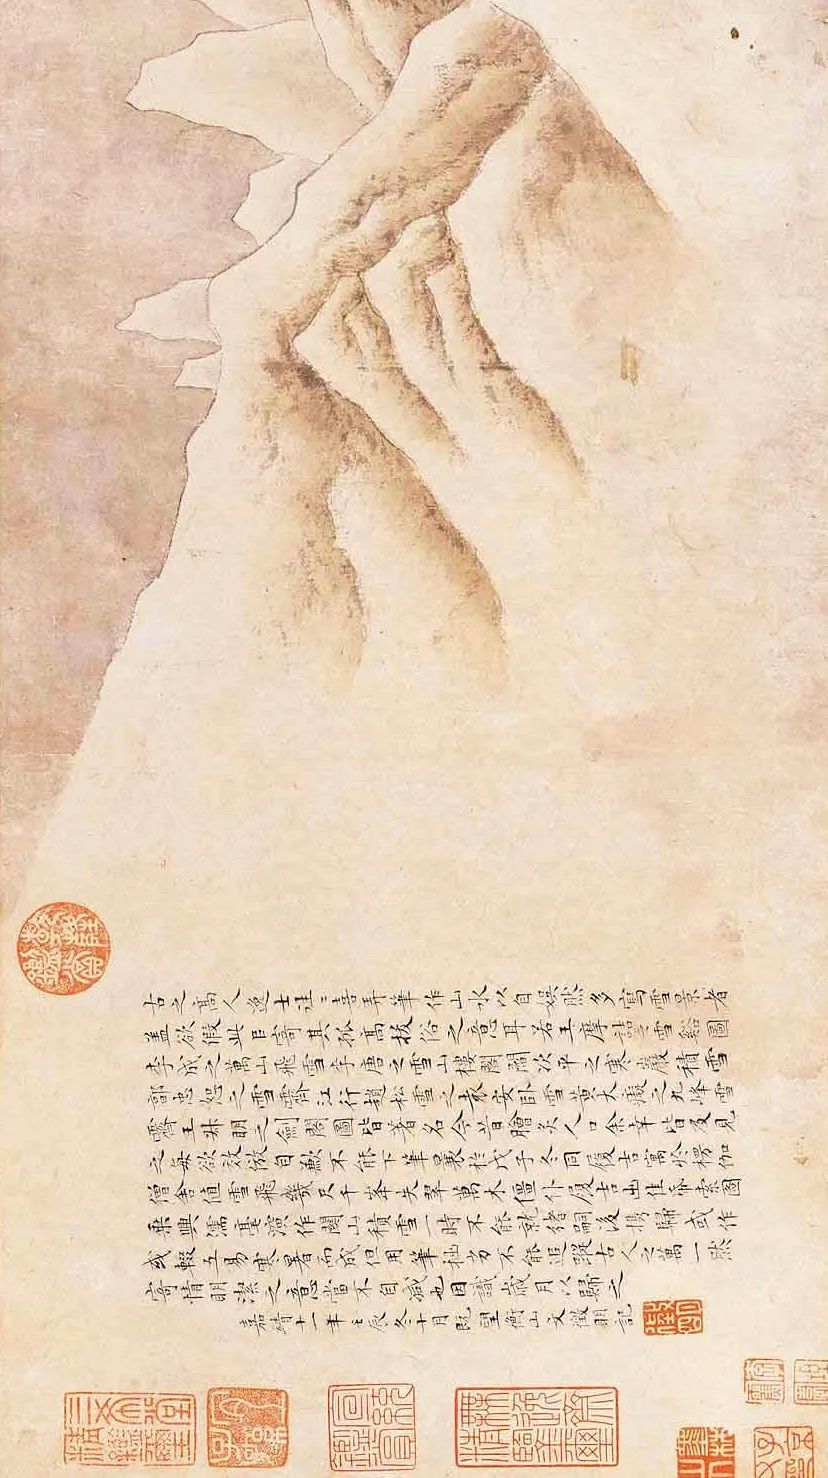 古之高人逸士往往喜弄筆作山水以自娛然多寫雪景者
蓋欲假此以寄其孤高拔俗之意耳若王摩詰之雪谿圖
李成之萬山飛雪李唐之雪山樓閣閻次平之寒巖積雪
郭忠恕之雪霽江行趙松雪之袁安臥雪黃大癡之九峰雪
霽王叔明之劍閣圖皆著名今昔膾炙人口余幸皆及見
之每欲效倣自歉不能下筆曩於戊子冬同履吉寓於楞伽
僧舍值雪飛幾尺千峯失翠萬木僵仆履吉出佳帋索圖
乘興濡毫演作關山積雪一時不能就緒嗣後携歸或作
或輟五易寒暑而成但用筆拙劣不能追蹤古人之萬一然
寄情明潔之意當不自減也因識歲月以歸之
嘉靖十一年壬辰冬十月既望衡山文徵明記
乾隆鑑賞
三希堂精鑑璽
宜子孫